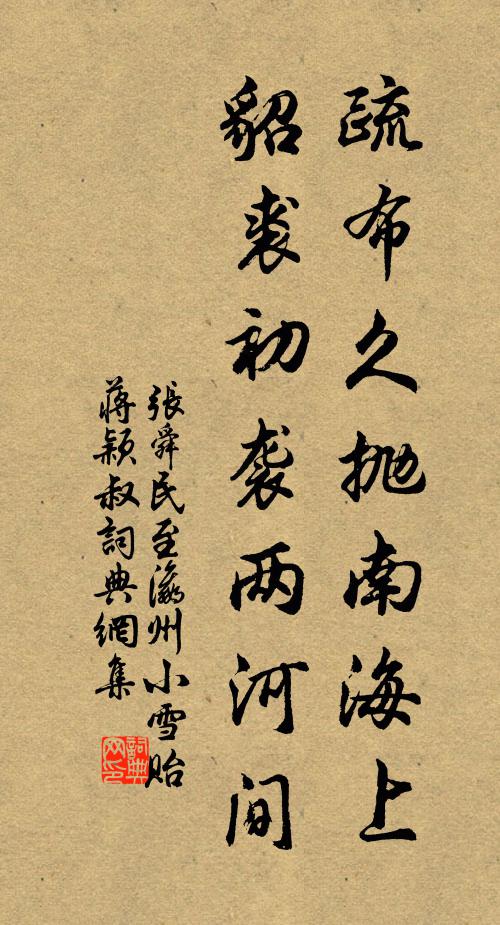 疏布久抛南海上
貂裘初袭两河间
張舜民至瀛州小雪貽
蔣颖叔詞典網集
詞典
网印